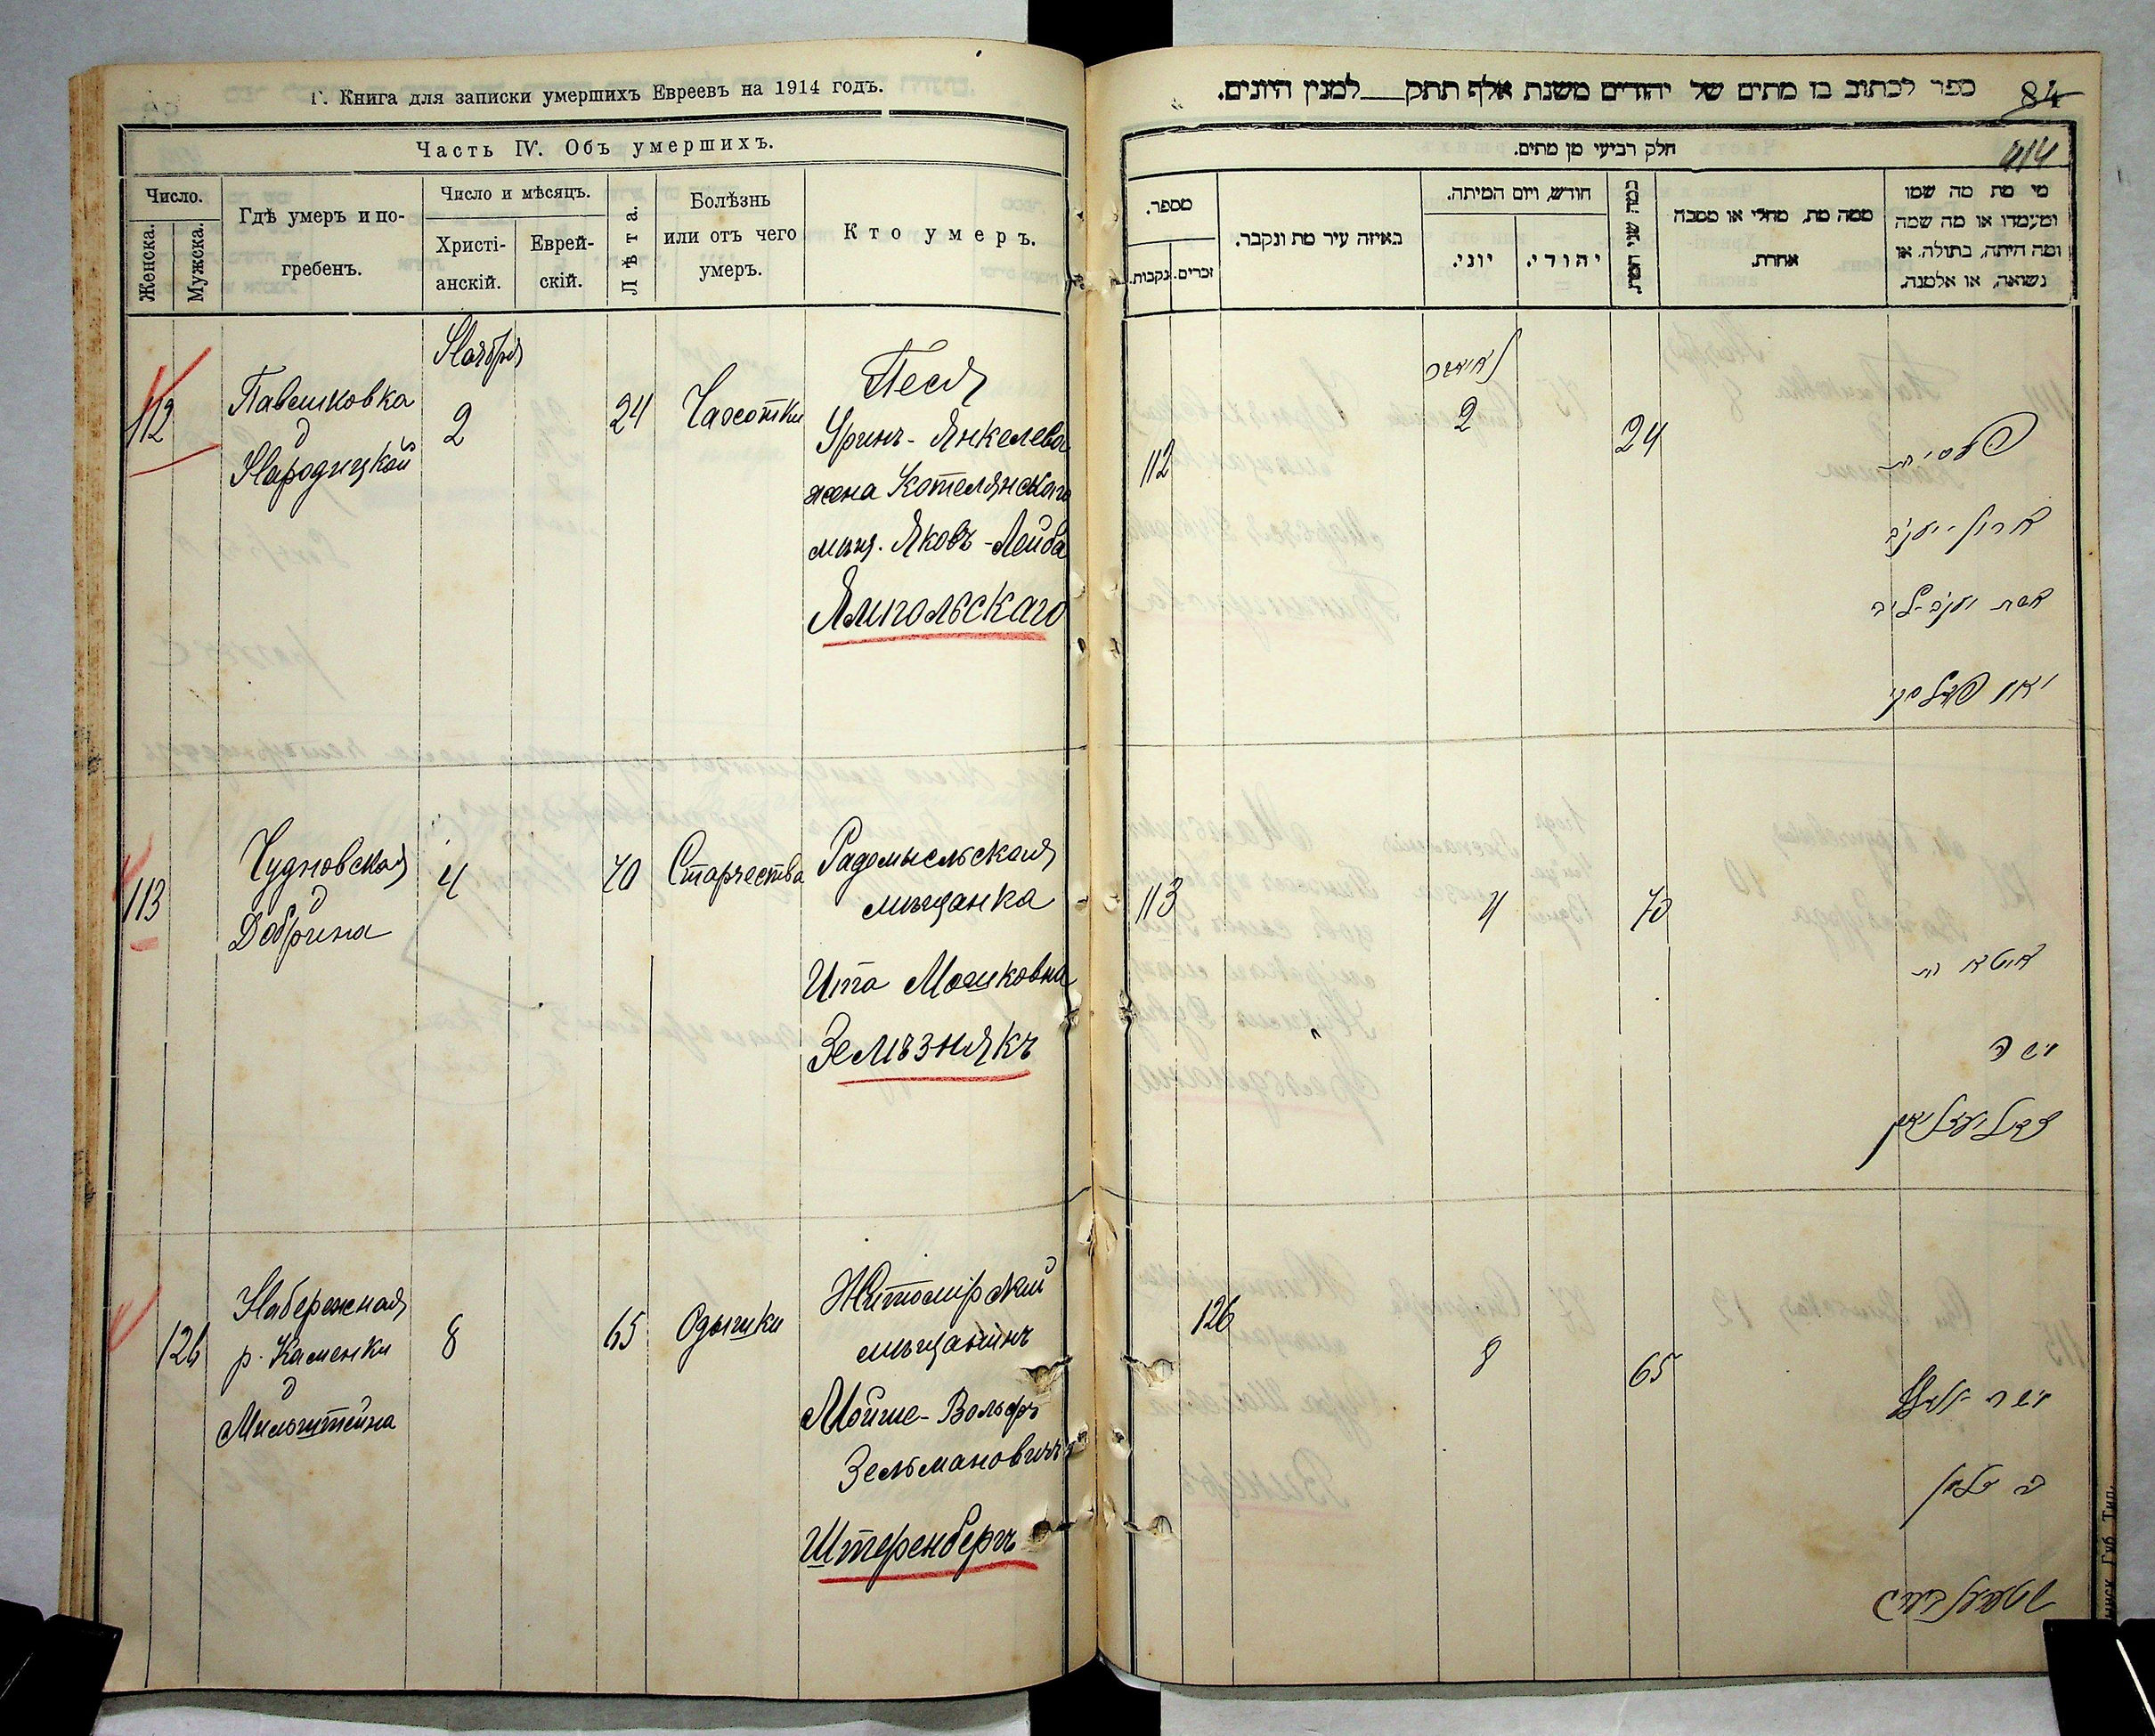 Г. Книга для записки умершихъ Евреевъ на 1914 годъ.
Часть IV. Объ умершихъ.
Число.
Женска.
Мужска.
Гдѣ умеръ и по-
гребенъ.
Число и мѣсяцъ.
Христі-
анскій.
Еврей-
скій.
Лѣта.
Болѣзнь
или отъ чего
умеръ.
Кто умеръ.
Ноября
112
Павликовка
д
Народицкой
2
24
Чахотки
Песя
Уринъ-Янкелева
жена Котелянскаго
мѣщ. Яковъ-Лейба
Ямпольскаго
113
Чудновская
д
Добрина
4
70
Старчества
Радомысльская
мѣщанка
Ита Мошковна
Зелѣзнякъ
126
Набережная
р. Каменки
д
Мильштейна
8
65
Одышки
Житомірскій
мѣщанинъ
Мойше-Вольфъ
Зельмановичъ
Штеренбергъ
ספר לכתוב בו מתים של יהודים משנת אלף תתק למנין היונים.
84
414
חלק רביעי מן מתים.
מספר.
נקבות.
זכרים.
באיזה עיר מת ונקבר.
חודש, ויום המיתה.
יוני.
יהודי.
כמה שני המת.
ממה מת, מחלי או מסבה
אחרת.
מי מת מה שמו
ומעמדו או מה שמה
ומה היתה, בתולה, או
נשואה, או אלמנה.
112
2
24
113
4
70
126
8
65